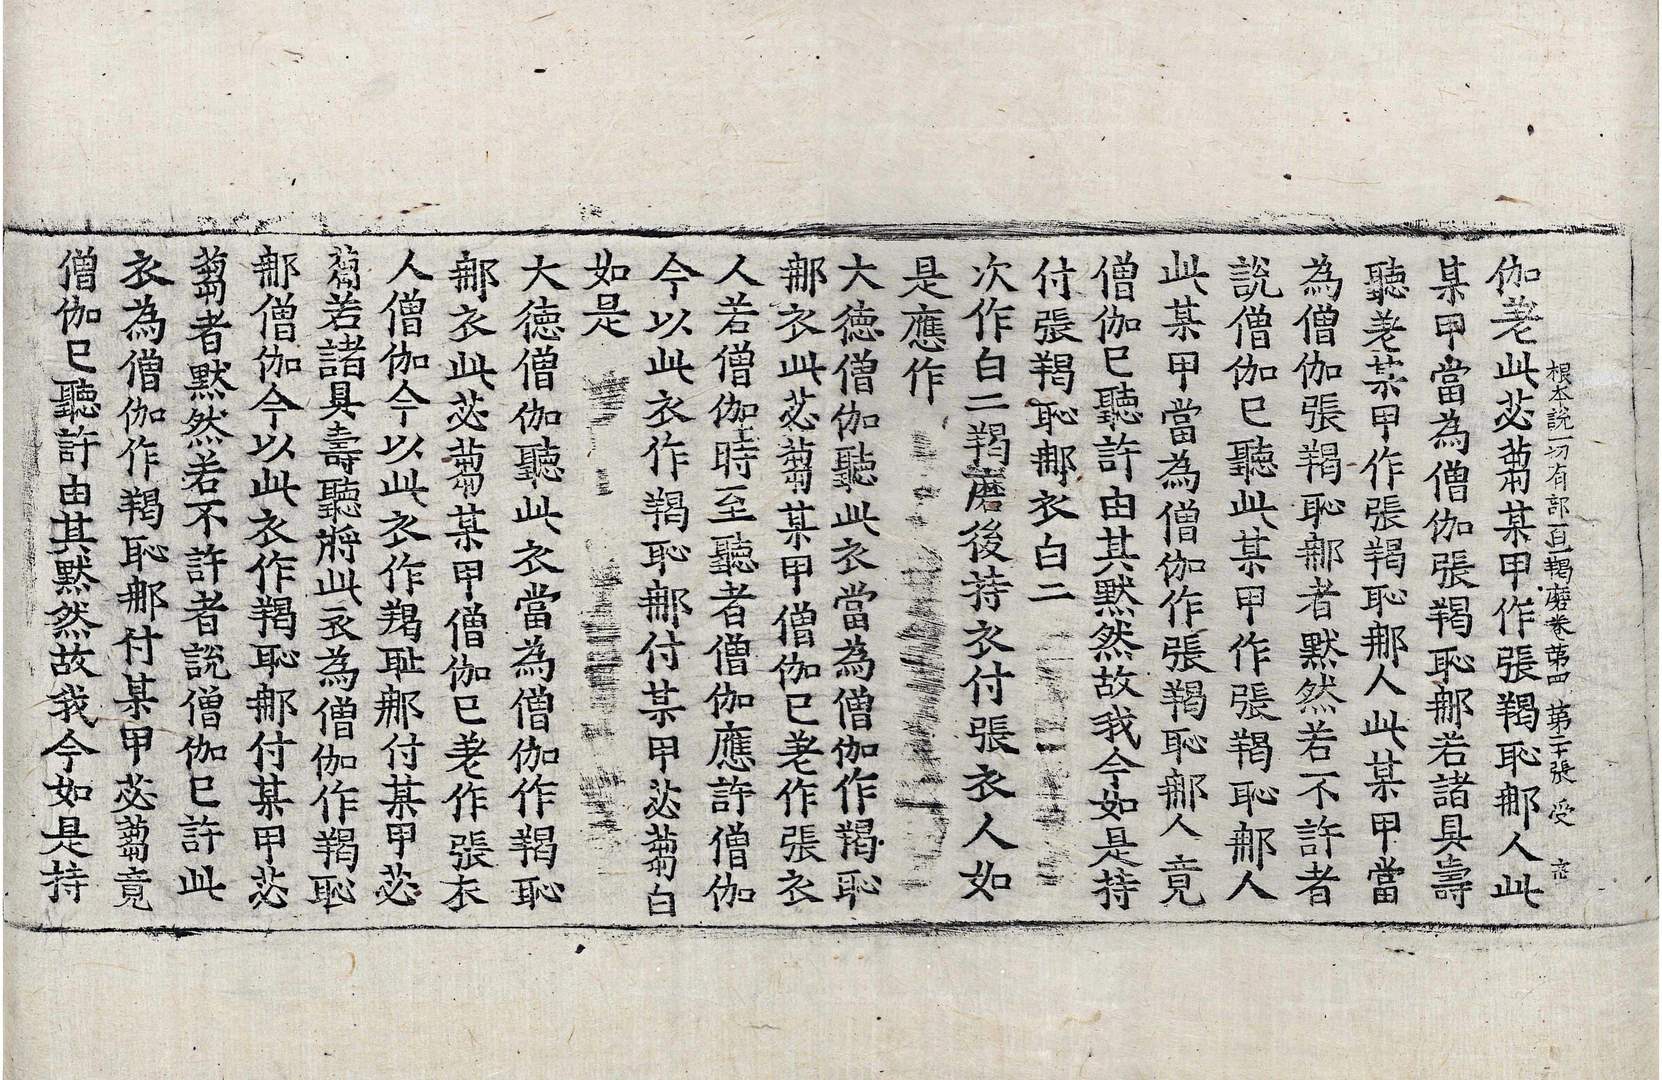 根本說一切有部百一羯磨卷第四 第二十張 受
伽差此苾蒭某甲作張羯恥那人此
某甲當為僧伽張羯恥那若諸具壽
聽差某甲作張羯恥那人此某甲當
為僧伽張羯恥那者默然若不許者
說僧伽已聽此某甲作張羯恥那人
此某甲當為僧伽作張羯恥那人竟
僧伽已聽許由其默然故我今如是持
付張羯恥那衣白二
次作白二羯磨後持衣付張衣人如
是應作
大德僧伽聽此衣當為僧伽作羯恥
那衣此苾蒭某甲僧伽已差作張衣
人若僧伽時至聽者僧伽應許僧伽
今以此衣作羯恥那付某甲苾蒭白
如是
大德僧伽聽此衣當為僧伽作羯恥
那衣此苾蒭某甲僧伽已差作張衣
人僧伽今以此衣作羯耻那付某甲苾
蒭若諸具壽聽將此衣為僧伽作羯恥
那僧伽今以此衣作羯恥那付某甲苾
蒭者默然若不許者說僧伽已許此
衣為僧伽作羯恥那付某甲苾蒭竟
僧伽已聽許由其默然故我今如是持